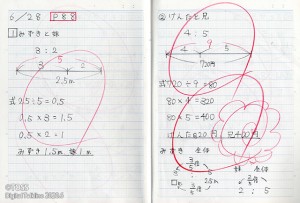 6/28 P88
① みすきと妹
3:2
5
3 2
2.5m
式 2.5÷5=0.5
0.5×3=1.5
0.5×2=1
みずき 1.5m 妹 1m
② けんたと兄
4:5
9
4 5
720円
式 720÷9=80
80×4=320
80×5=400
けんた320円 兄400円
みずき 全体
3:5
2.5m
妹 全体
2:5
©TOSS